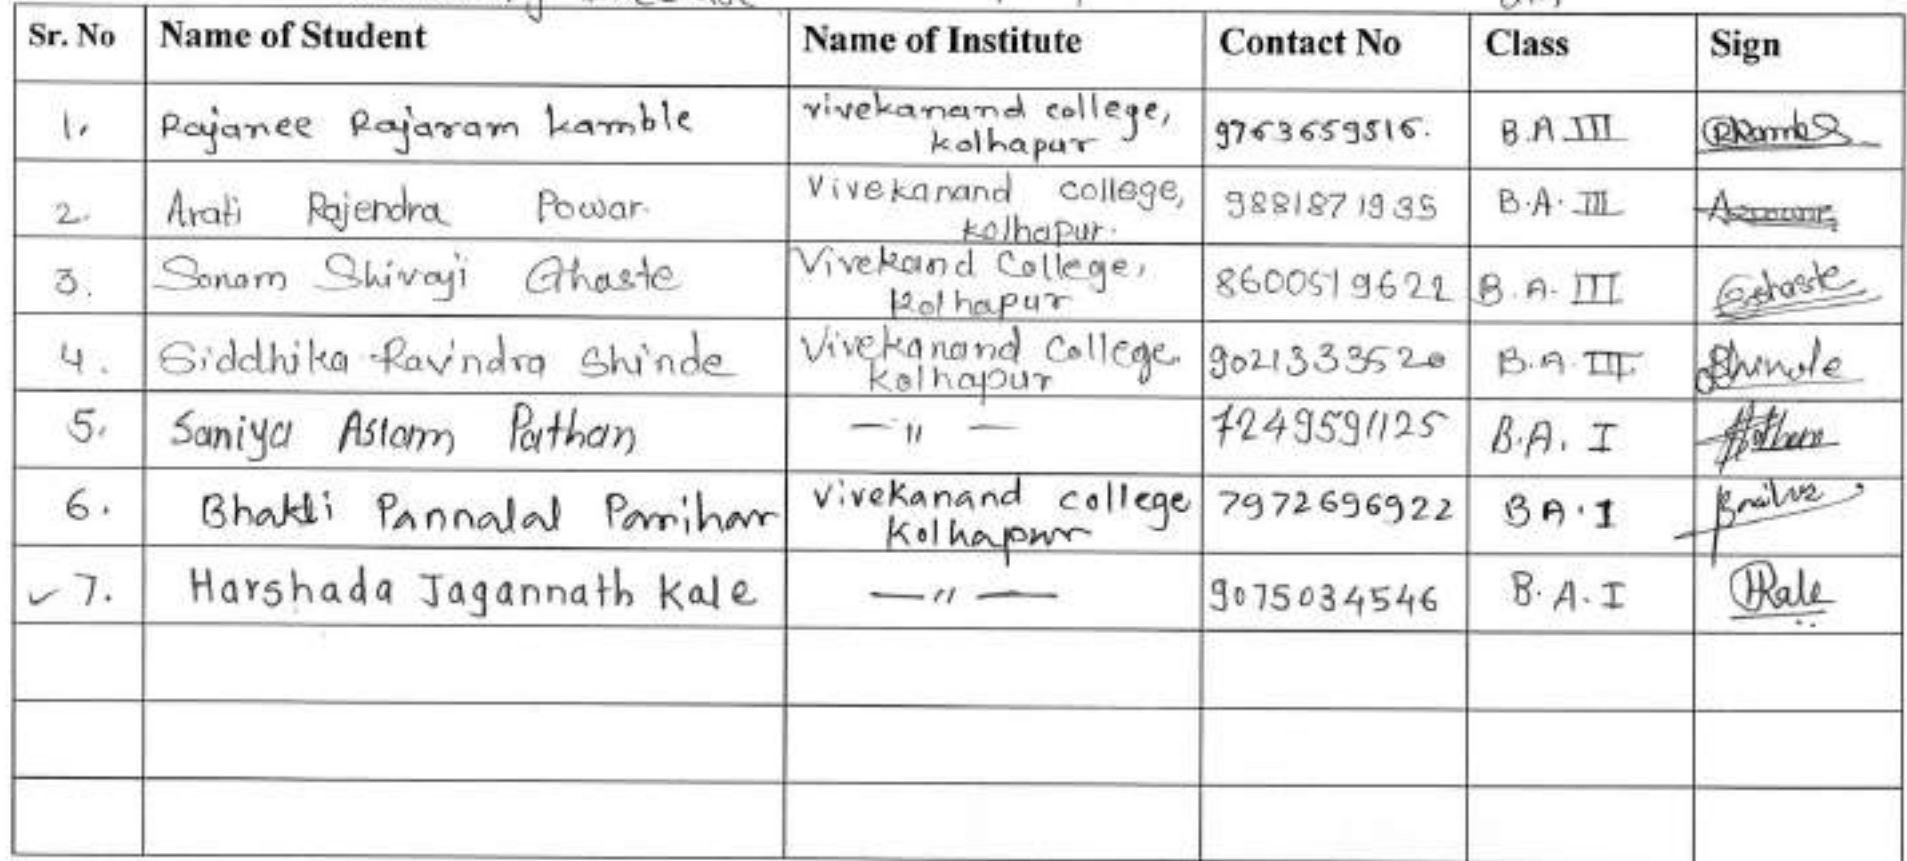 Sr. No Name of Student Name of Institute Contact No Class Sign
1. Rajanee Rajaram kamble vivekanand college, 9763659516. B.A III
kolhapur
2. Arati Rajendra Powar. Vivekanand college, 9881871935 B.A. III
kolhapur.
3. Sonam Shivaji Ghaste Vivekand College, 8600519622 B.A. III Gghaste
kolhapur
4. Siddhika Ravindra Shinde Vivekanand College. 9021333520 B.A. III. Shinde
kolhapur
5. Saniya Aslam Pathan — " — 7249591125 B.A. I
6. Bhakti Pannalal Parrihar Vivekanand college 7972696922 BA.I
Kolhapur
7. Harshada Jagannath Kale — " — 9075034546 B.A.I HKale